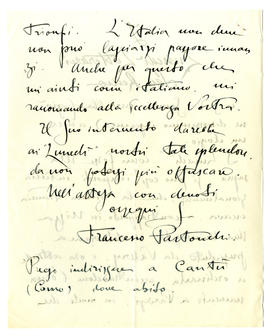 Trionfi. L'Italia non deve
non può lasciarsi passare innan
zi. Anche per questo che
mi ainti come italiano, mi
raccomando alla Eccellenza Vostra.
Il Suo intervento darebbe
ai "Lunedì" nostri tale splendore
da non potersi più offuscare
Nell'attesa con devoti
ossequi
Francesco Pastonchi.
Prego indirizzare a Cantù
(Como) dove abito.